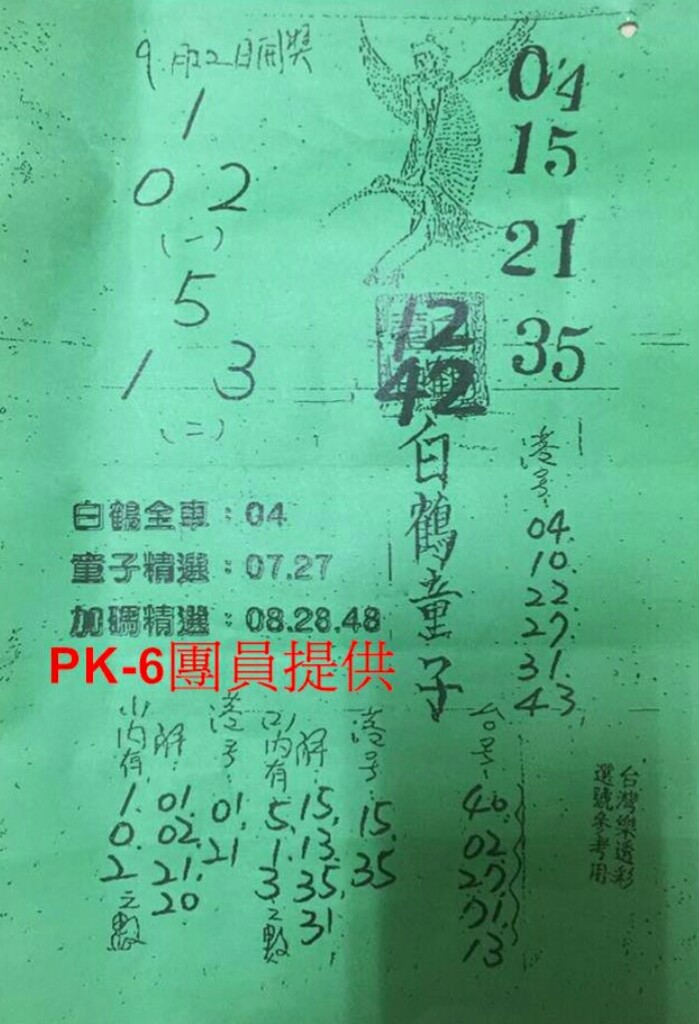 9月22日開獎
1
0 2
(一)
5
1 3
(二)
04
15
21
35
12
42
白鶴童子
港号:
04.
10.
22.
27.
31.
43.
白鶴全車：04
童子精選：07.27
加碼精選：08.28.48
PK-6團員提供
(1)內有
1.
0.
2
之數
解:
01.
02.
21.
20
港号:
01.
21
(2)內有
5.
1.
3
之數
解:
15,
13.
35,
31
港号:
15.
35
台号:
40.
02.
27.
71.
13
台灣樂透彩
選號參考用